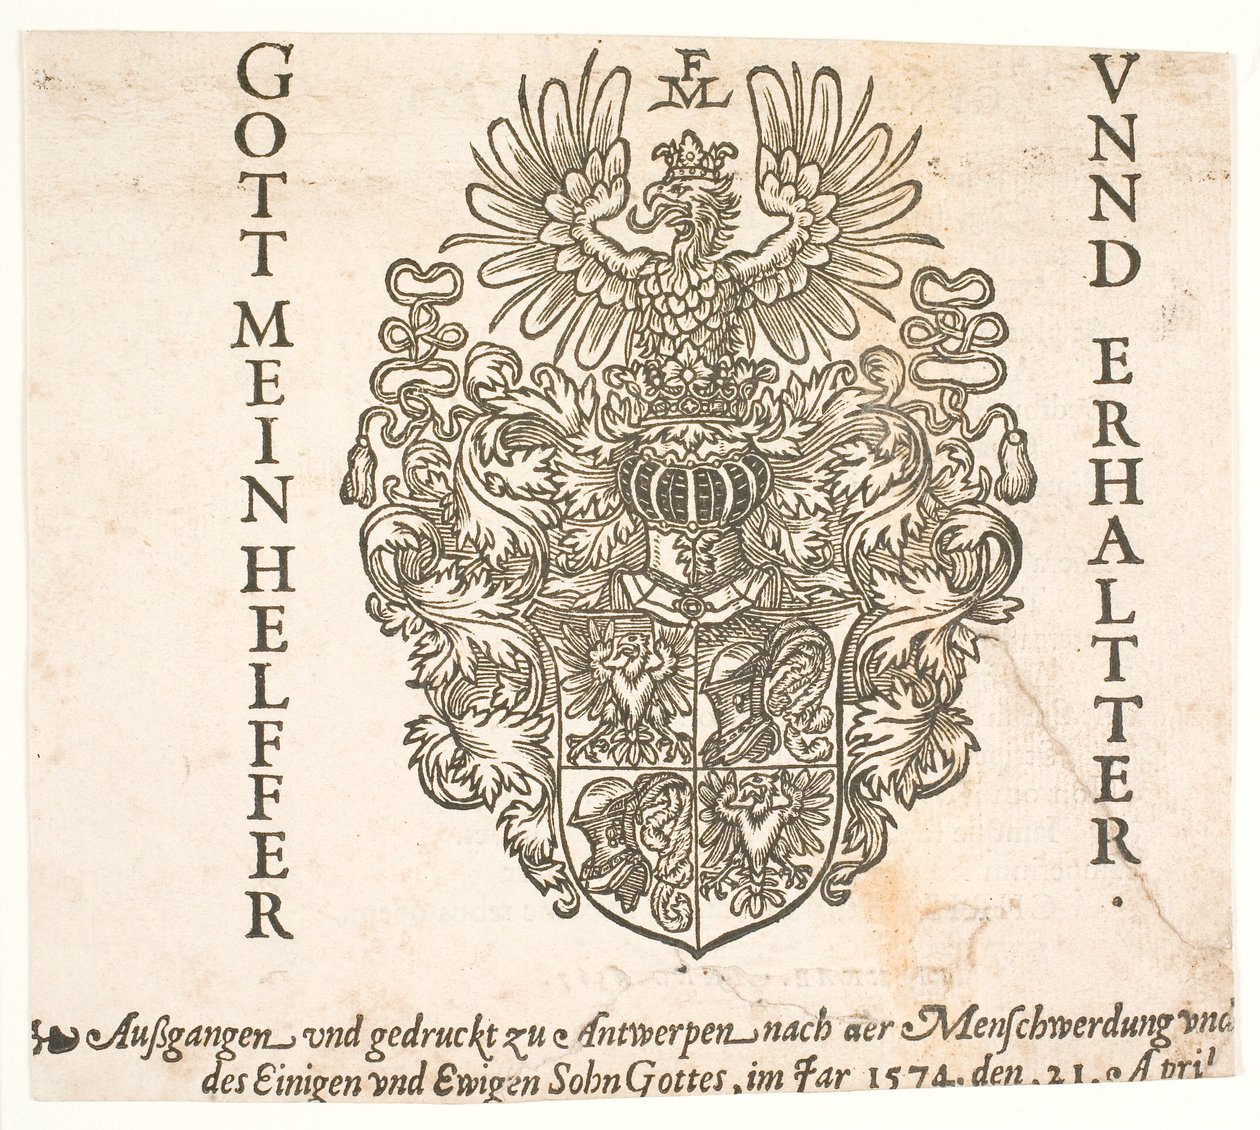 F
ML
GOTT MEIN HELFFER
VNND ERHALTTER.
Außgangen vnd gedruckt zu Antwerpen nach der Menschwerdung vnd
des Einigen vnd Ewigen Sohn Gottes, im Jar 1574. den . 21. April